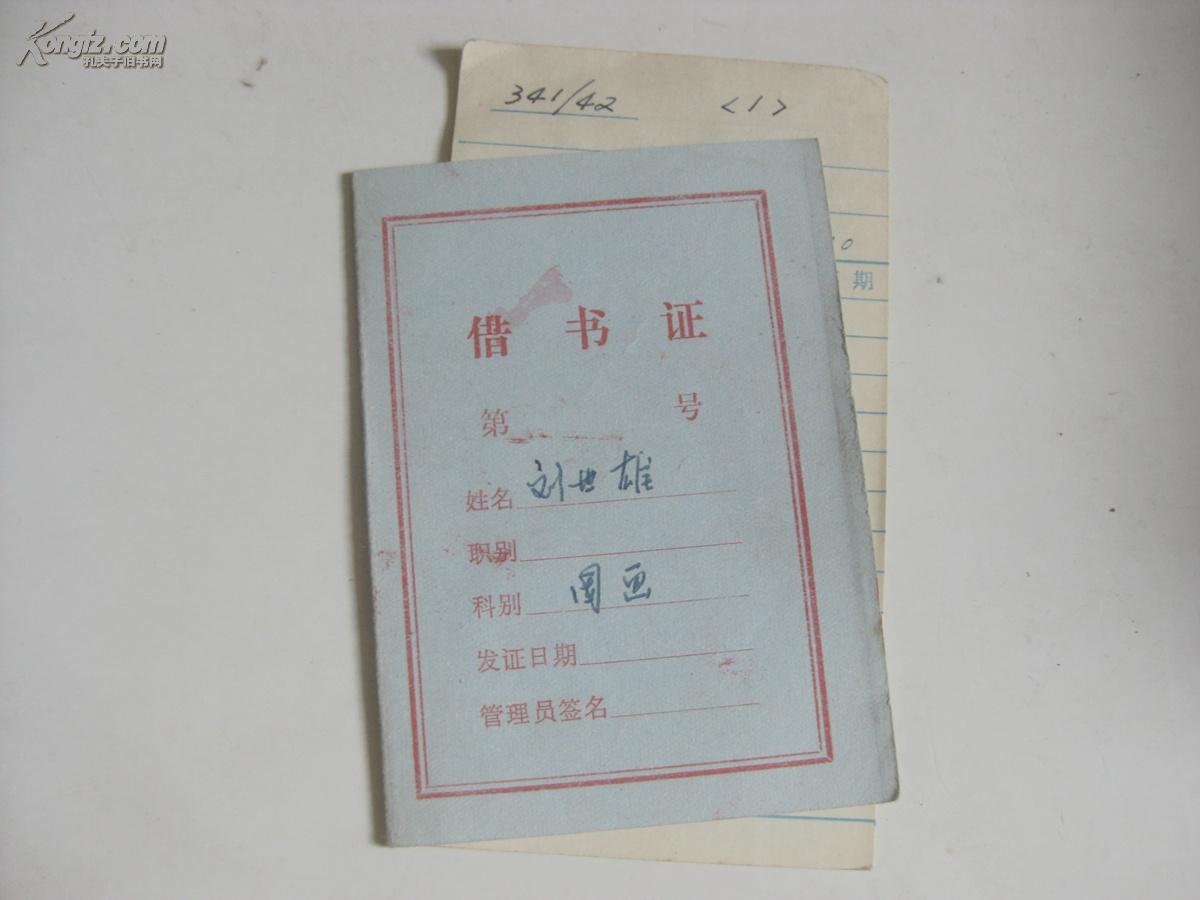 Kongfz.com
孔夫子旧书网
341/42 <1>
0
期
借书证
第 号
姓名 刘世雄
职别
科别 国画
发证日期
管理员签名